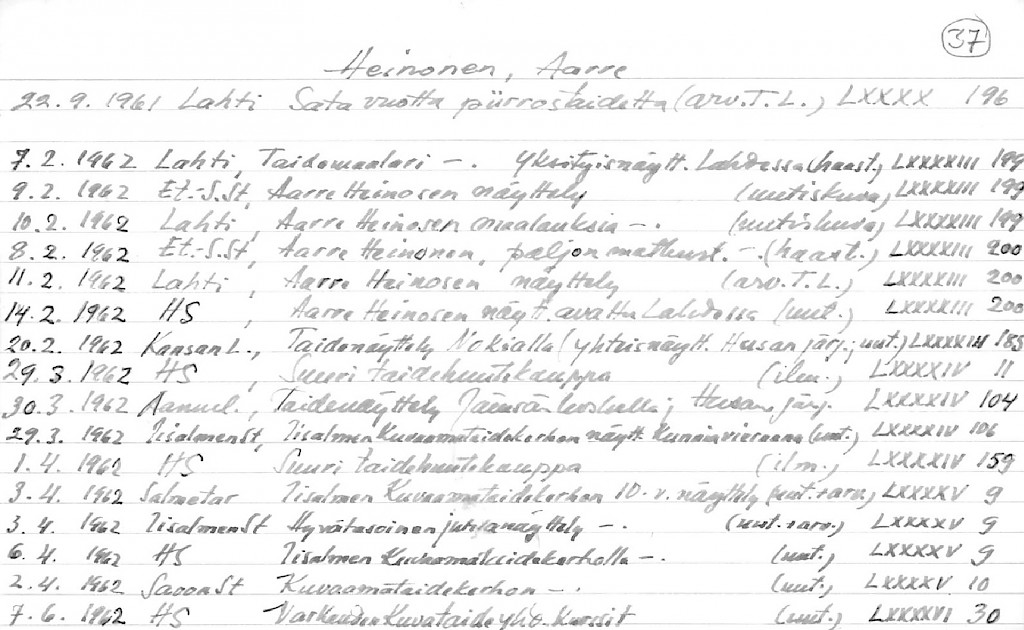 37
Heinonen, Aarre
22.9.1961 Lahti Sata vuotta piirrostaidetta (arv. T.L.) LXXXX 196
7.2. 1962 Lahti, Taidemaalari -. Yksityisnäytt. Lahdessa (haast.) LXXXXIII 199
9.2. 1962 Et.-S.St, Aarre Heinosen näyttely (uutiskuva) LXXXXIII 199
10.2. 1962 Lahti, Aarre Heinosen maalauksia -. (uutiskuva) LXXXXIII 199
8.2. 1962 Et.-S.St, Aarre Heinonen, paljon matkust. -. (haast.) LXXXXIII 200
11.2. 1962 Lahti, Aarre Heinosen näyttely (arv. T.L.) LXXXXIII 200
14.2. 1962 HS, Aarre Heinosen näytt. avattu Lahdessa (uut.) LXXXXIII 200
20.2. 1962 Kansan L., Taidenäyttely Nokialla (yhteisnäytt. Husan järj.; uut.) LXXXXIII 185
29.3. 1962 HS, Suuri taidehuutokauppa (ilm.) LXXXXIV 11
30.3. 1962 Aamul., Taidenäyttely Jämsänkoskella; Husan järj. LXXXXIV 104
29.3. 1962 Iisalmen St, Iisalmen Kuvaamataidekerhon näytt. Kunniavieraana (uut.) LXXXXIV 106
1.4. 1962 HS Suuri taidehuutokauppa (ilm.) LXXXXIV 159
3.4. 1962 Salmetar Iisalmen Kuvaamataidekerhon 10-v. näyttely (uut.+arv.) LXXXXV 9
3.4. 1962 Iisalmen St Hyvätasoinen juhlanäyttely -. (uut.+arv.) LXXXXV 9
6.4. 1962 HS Iisalmen Kuvaamataidekerholla -. (uut.) LXXXXV 9
2.4. 1962 Savon St Kuvaamataidekerhon -. (uut.) LXXXXV 10
7.6. 1962 HS Varkauden Kuvataideyhd. Kurssit (uut.) LXXXXVI 30